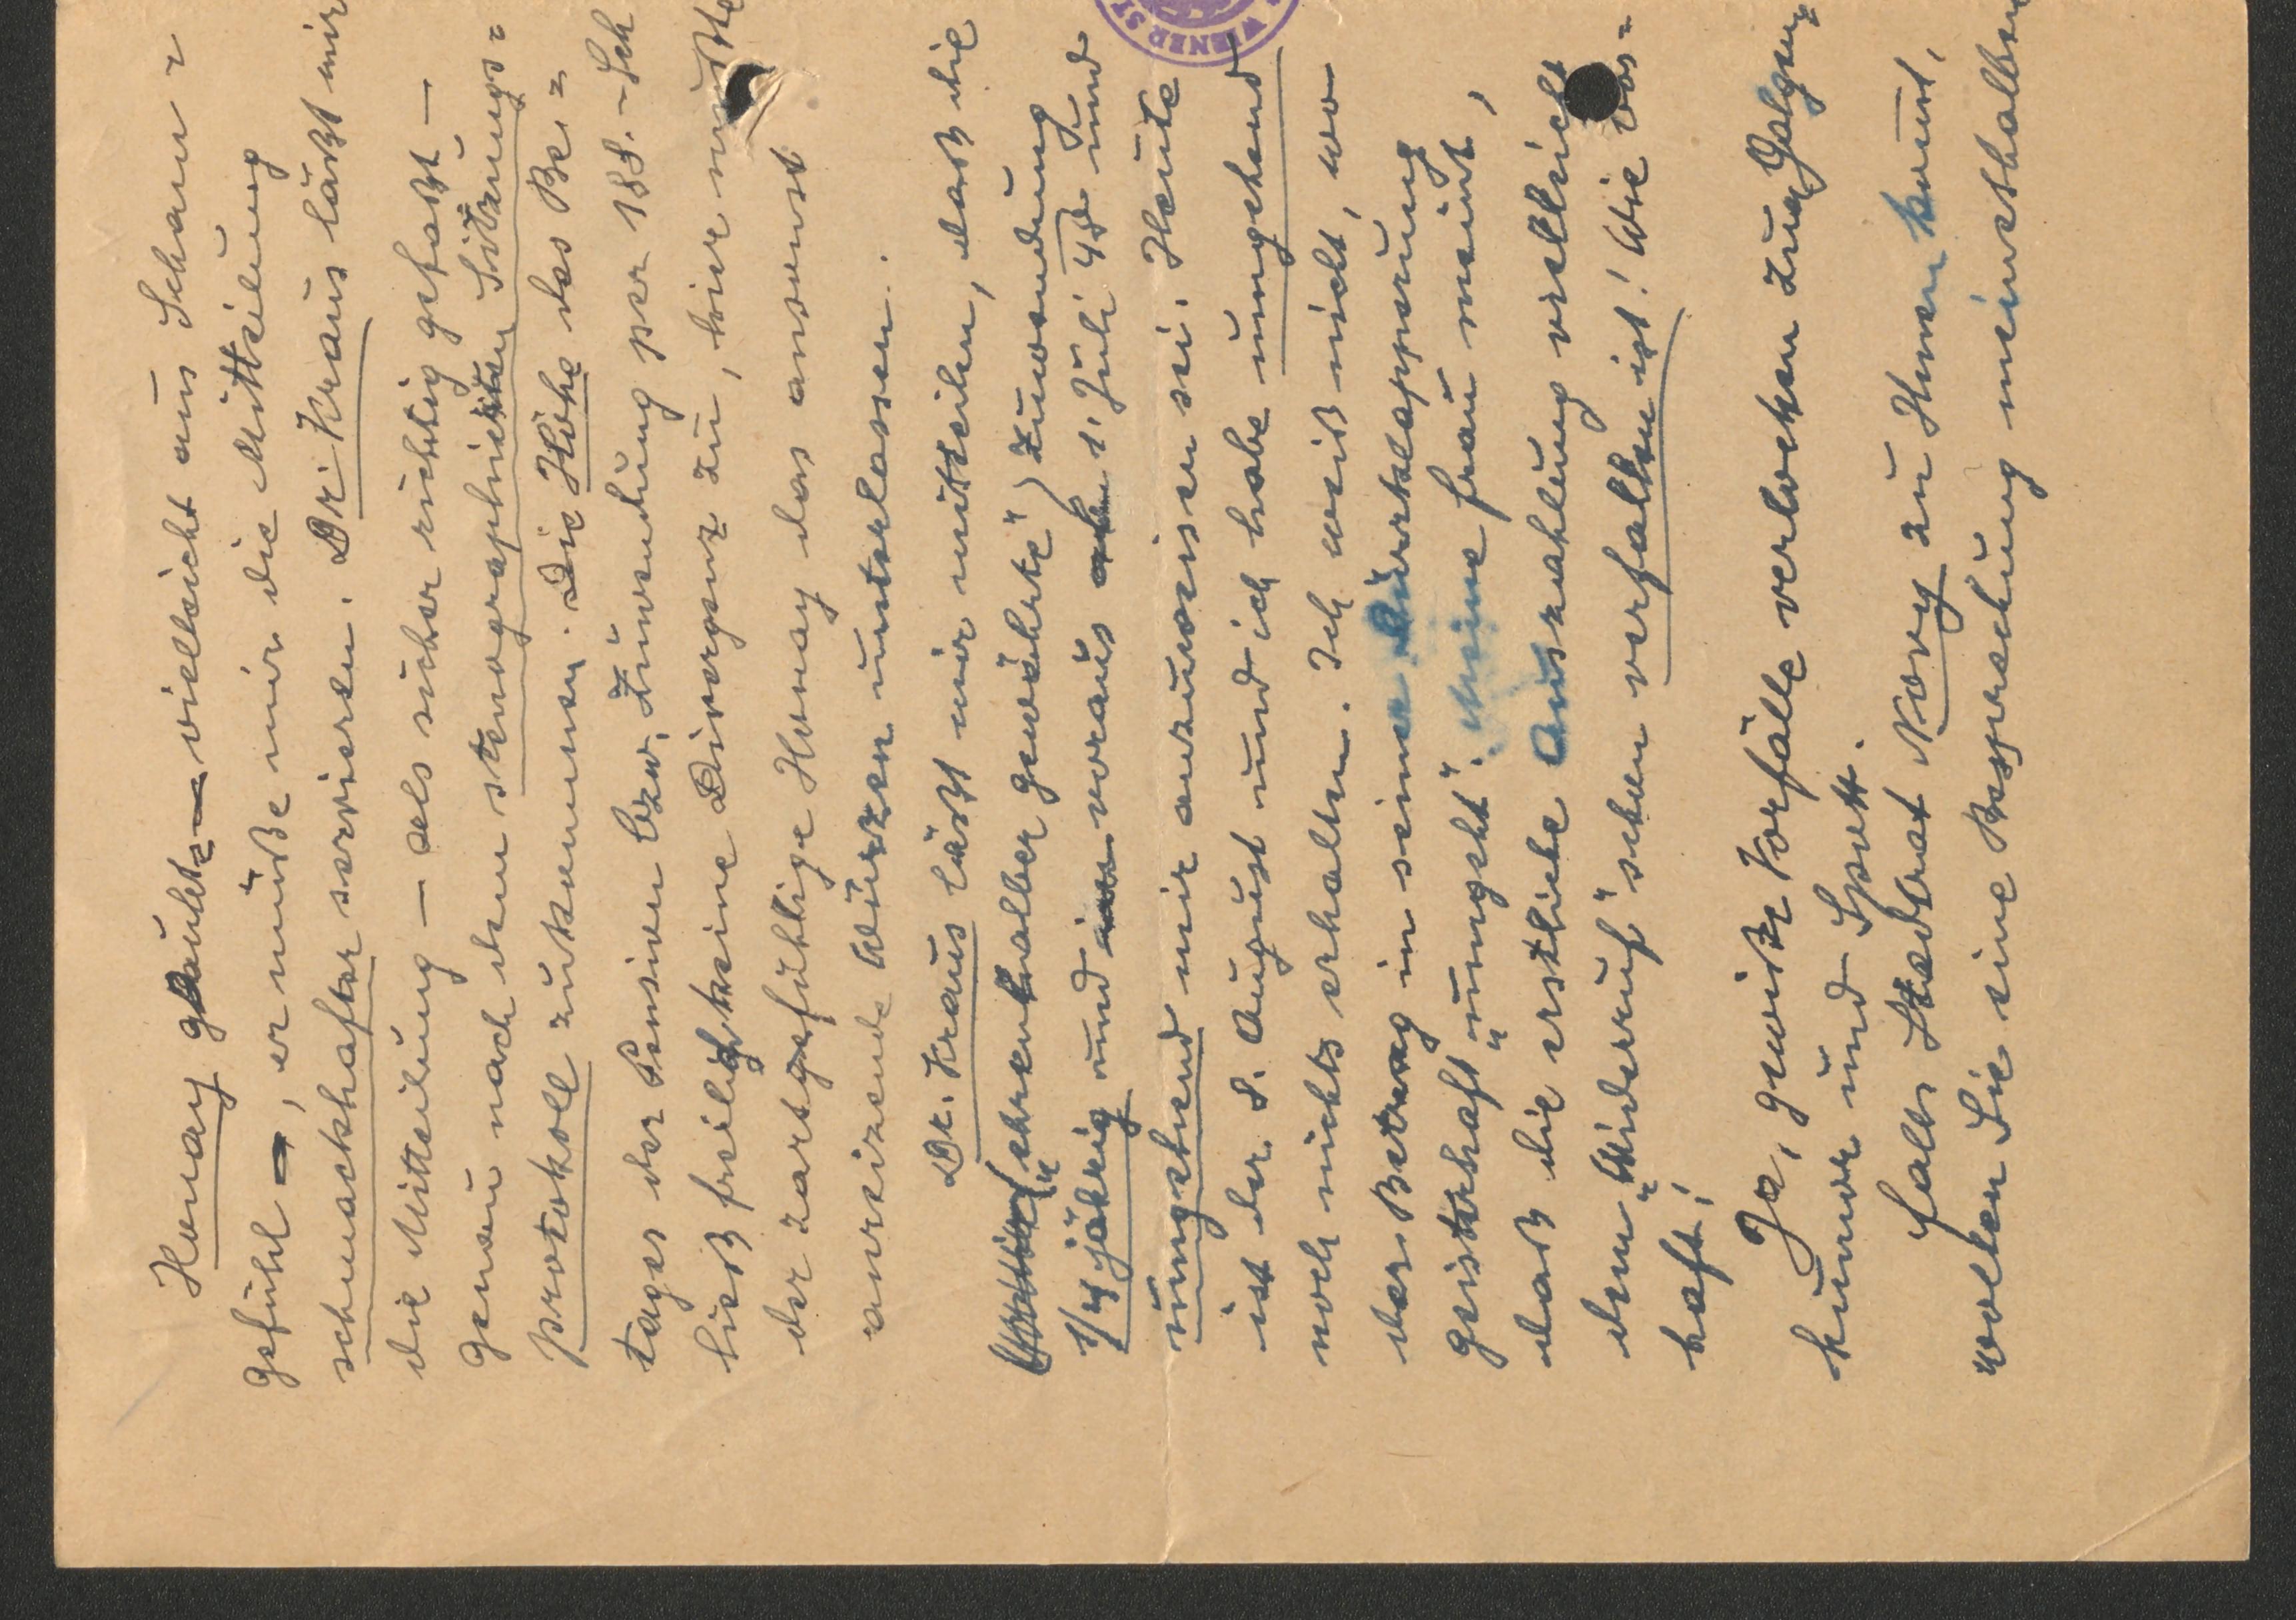 Honay glaubte — vielleicht aus Scham=
gefühl —, er müße mir die Mitteilung
schmackhafter servieren. Dr. Kraus läßt mir
die Mitteilung — als sicher richtig gefaßt —
genau nach dem stenographierten Sitzungs=
protokoll zukommen. Die Höhe des Be=
tages der Pension bzw. Zuwendung per 188.- Sch
ließ freilich keine Divergenz zu, hier mußte
der zartgefühlige Honay das ansonst
anreizende Würzen unterlassen.
Dr. Kraus läßt mir mitteilen, daß die
("ehrenhalber gewährte") Zuwendung
1/4jährig und voraus 1. Juli 48 und
umgehend mir anzuweisen sei. Heute
ist der 8. August und ich habe umgehend
noch nichts erhalten. Ich weiß nicht, wo
der Betrag in seiner
geisterhaft "umgeht". Meine Frau meint,
daß die erstliche Auszahlung vielleicht
dem "Widerruf" schon verfallen ist! Wie bos=
haft!
Ja, gewiße Vorfälle verlocken zu Galgen=
humor und Spott.
Falls Stadtrat Novy zu Ihnen kommt,
wollen Sie eine Besprechung meinethalben
WIENER ST